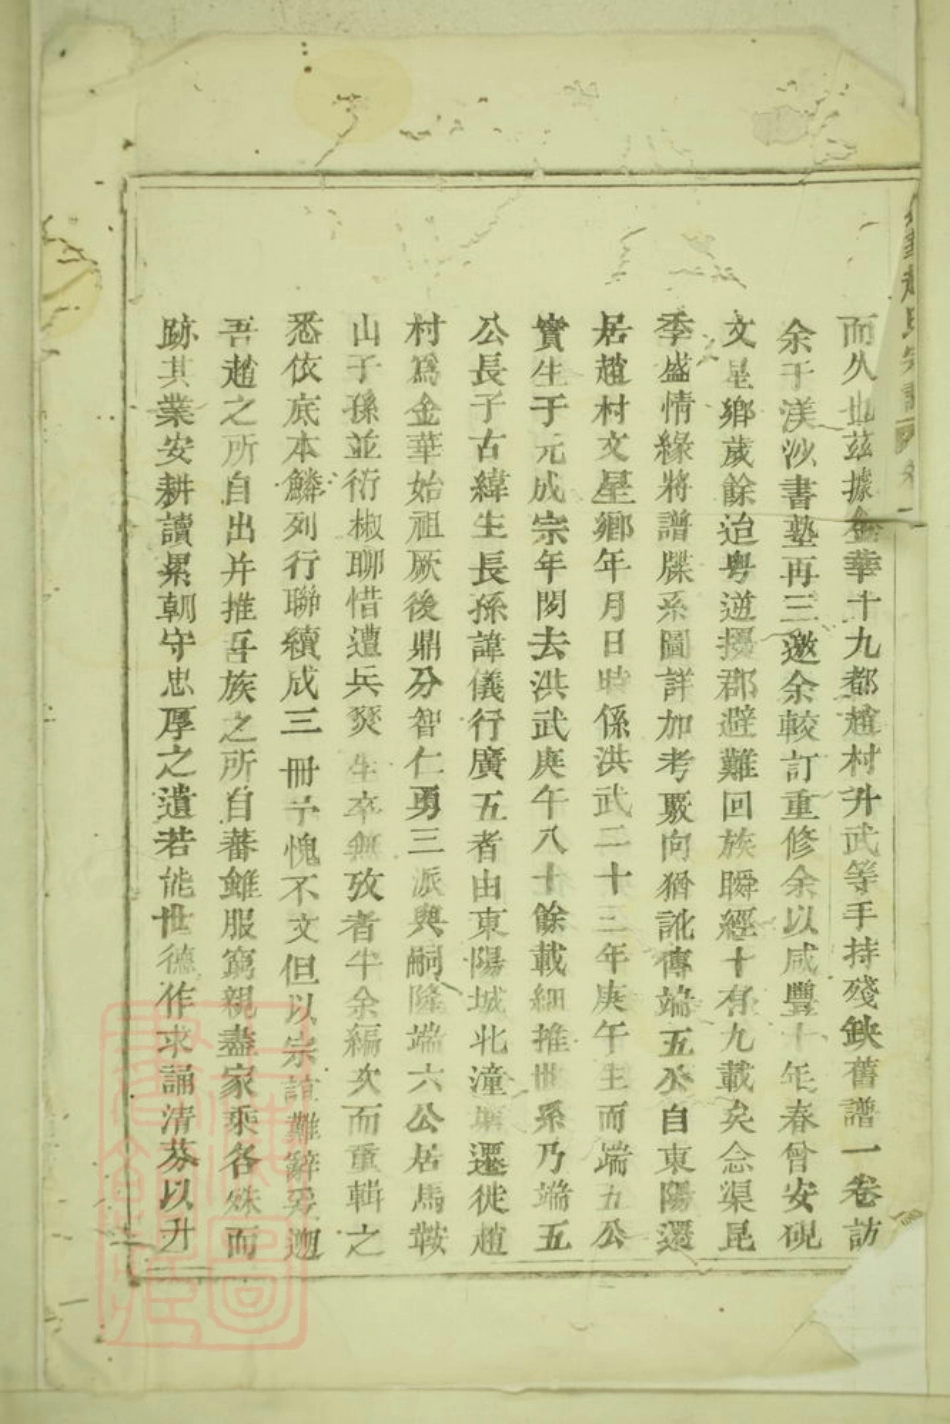 而久也茲據金華十九都趙村升武等手持殘缺舊譜一卷訪
余于渼沙書塾再三邀余較訂重修余以咸豐十年春曾安硯
文星鄉歲餘迨粤逆擾郡避難回族瞬經十有九載矣念渠昆
季盛情緣將譜牒系圖詳加考覈向猶訛傳端五公自東陽還
居趙村文星鄉年月日時係洪武二十三年庚午生而端五公
實生于元成宗年間去洪武庚午八十餘載細推世系乃端五
公長子古緯生長孫諱儀行廣五者由東陽城北潼塘遷徙趙
村爲金華始祖厥後鼎分智仁勇三派與嗣隆端六公居馬鞍
山子孫並衍椒聊惜遭兵燹生卒無攷者半余編次而重輯之
悉依底本鱗列行聯續成三冊予愧不文但以宗誼難辭爰遡
吾趙之所自出并推吾族之所自蕃雖服窮親盡家乘各殊而
跡其業安耕讀累朝守忠厚之遺若能世德作求誦清芬以升